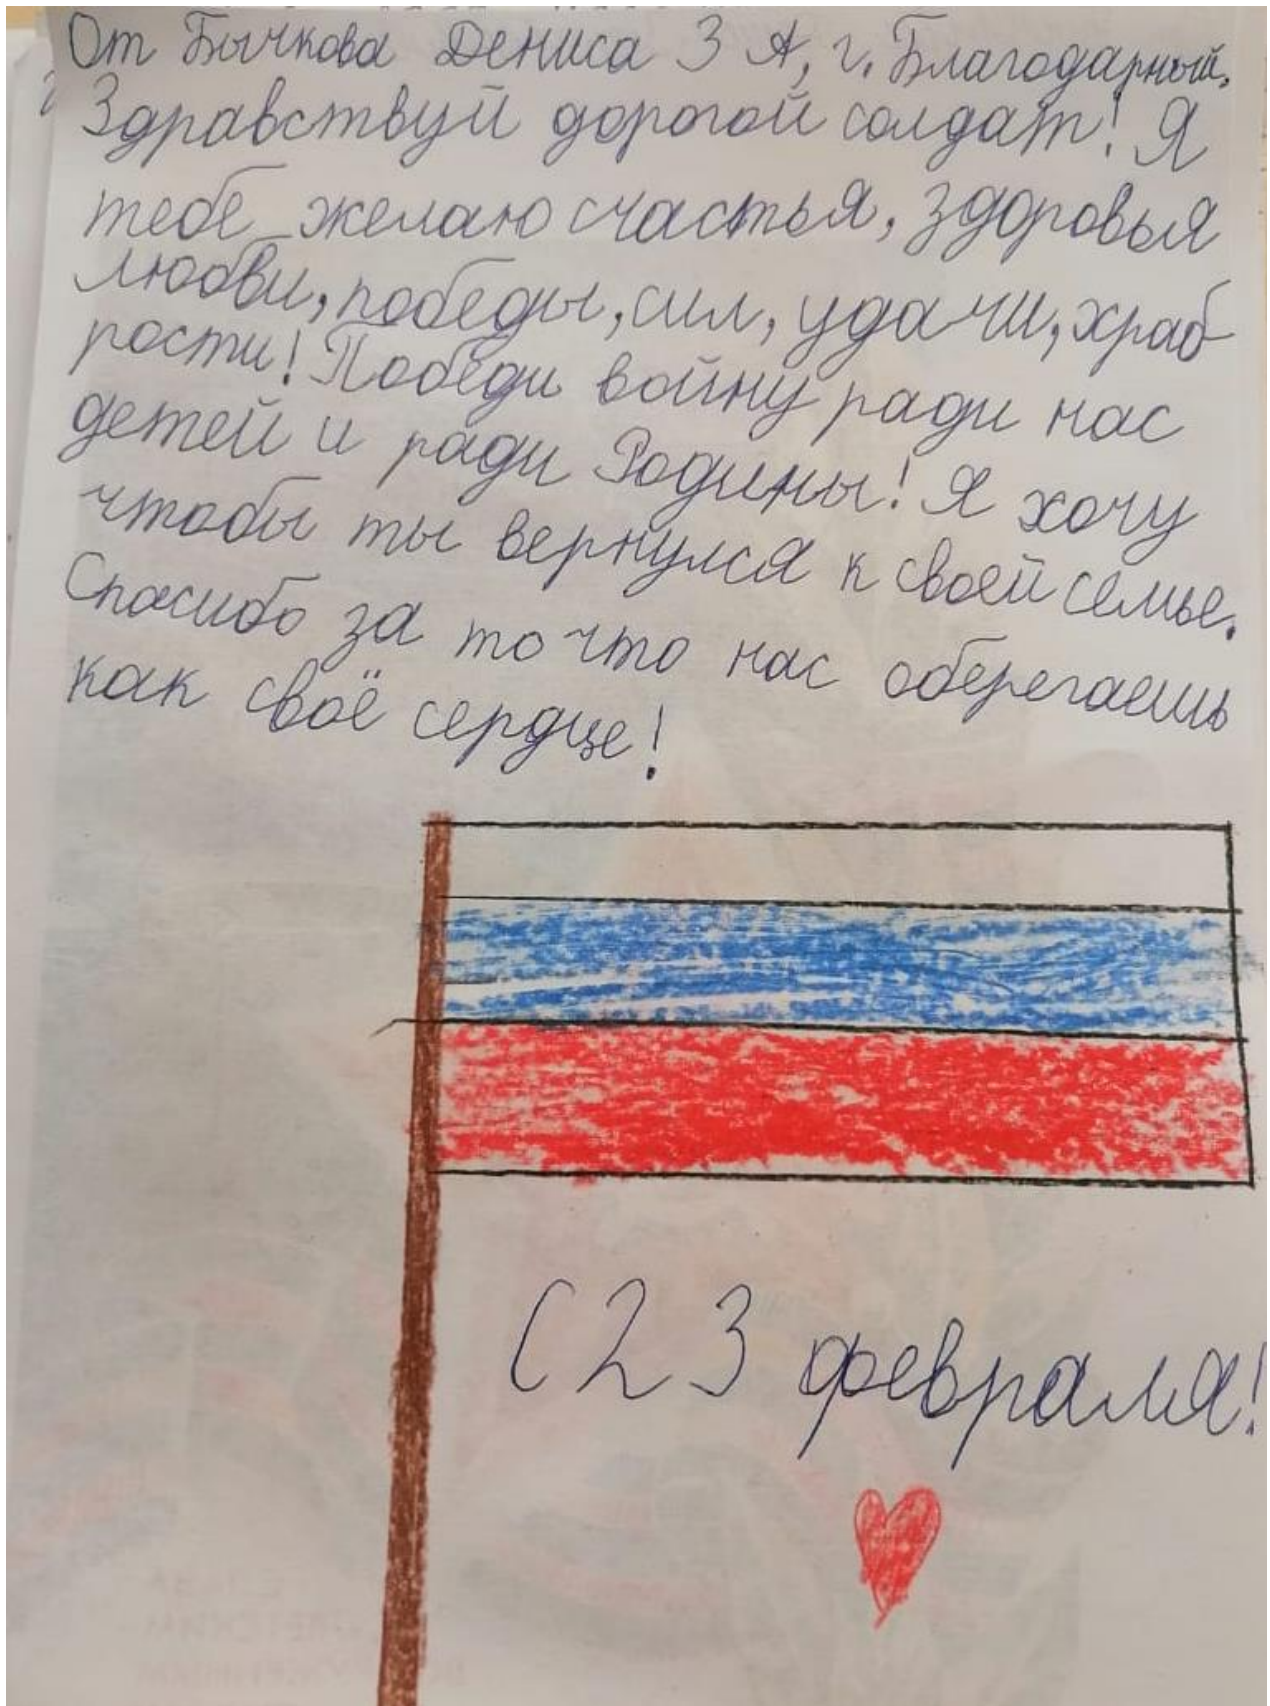 От Бычкова Дениса 3 А, г. Благодарный.
Здравствуй дорогой солдат! Я
тебе желаю счастья, здоровья
любви, победы, сил, удачи, храб
рости! Победи войну ради нас
детей и ради Родины! Я хочу
чтобы ты вернулся к своей семье.
Спасибо за то что нас оберегаешь
как своё сердце!
С 23 февраля!